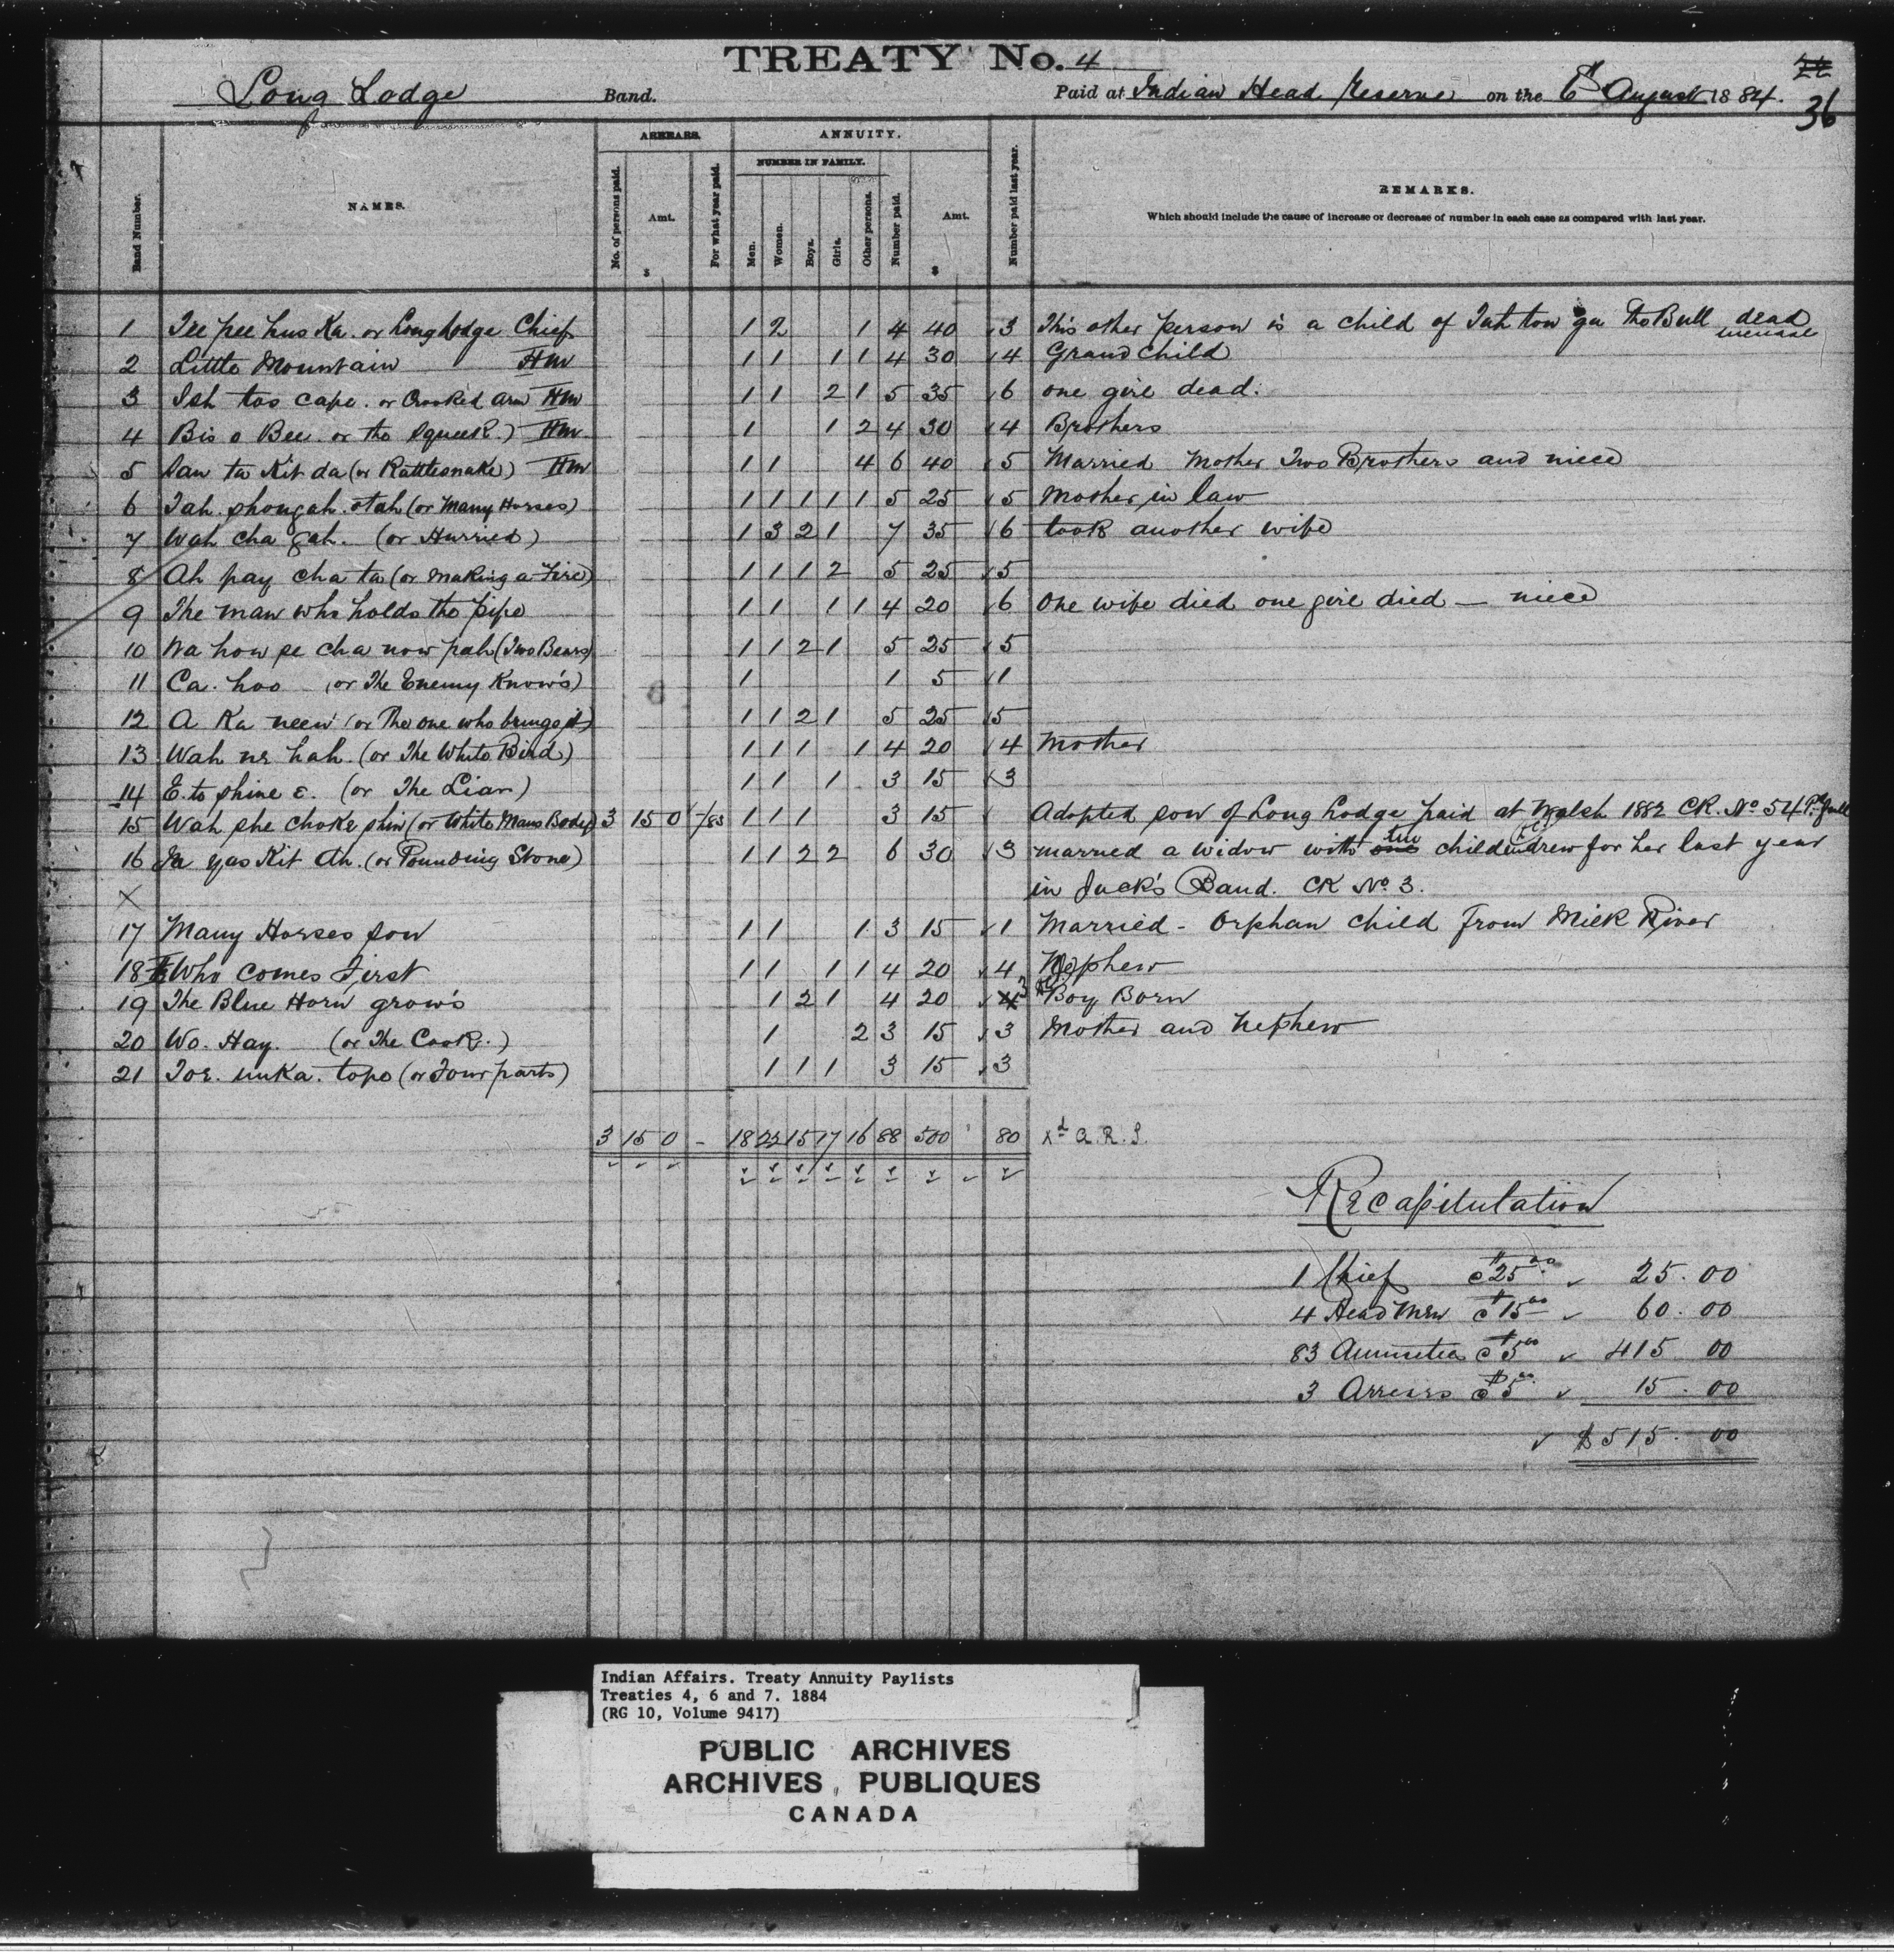 TREATY No. 4
22
36
Long Lodge Band. Paid at Indian Head Reserve on the 6th August 1884.
ARREARS. ANNUITY.
NUMBER IN FAMILY.
Band Number. NAMES. No. of persons paid. Amt. $ For what year paid. Men. Women. Boys. Girls. Other persons. Number paid. Amt. $ Number paid last year. REMARKS.
Which should include the cause of increase or decrease of number in each case as compared with last year.
1 Tee pee hus Ka. or Long Lodge Chief 1 2 1 4 40 3 This other person is a child of Tah ton ga The Bull dead
2 Little Mountain HM 1 1 1 1 4 30 4 Grand child
3 Ish tos cape. or Crooked Arm HM 1 1 2 1 5 35 6 one girl dead.
4 Bis o Bee. or the Squeek.) HM 1 1 2 4 30 4 Brothers
5 San ta Kit da (or Rattlesnake) HM 1 1 4 6 40 5 Married Mother Two Brothers and niece
6 Tah. shongah. otah (or Many Horses) 1 1 1 1 1 5 25 5 Mother in law
7 Wah cha gah. (or Hurried) 1 3 2 1 7 35 6 took another wife
8 Ah pay cha ta (or Making a Fire) 1 1 1 2 5 25 5
9 The man who holds the pipe 1 1 1 1 4 20 6 One wife died one girl died — niece
10 Wa how pe cha now pah (Two Bears) 1 1 2 1 5 25 5
11 Ca. hoo (or The Enemy Know's) 1 1 5 1
12 A Ka neen (or The one who brings it) 1 1 2 1 5 25 5
13 Wah ne hah. (or The White Bird) 1 1 1 1 4 20 4 Mother
14 E. to shine e. (or The Liar) 1 1 1 3 15 3
15 Wah she choke shin (or White Mans Body) 3 15 0 /83 1 1 1 3 15 Adopted son of Long Lodge paid at Walsh 1882 CK. No 54
16 Ia yas Kit Ah. (or Pounding Stone) 1 1 2 2 6 30 3 married a widow with two children drew for her last year
in Jack's Band. CK No. 3.
17 Many Horses son 1 1 1 3 15 1 Married - Orphan child from Milk River
18 Who comes First 1 1 1 1 4 20 4 Nephew
19 The Blue Horn grow's 1 2 1 4 20 4 3 Boy Born
20 Wo. Hay. (or The Cook.) 1 2 3 15 3 Mother and nephew
21 Toe. unka. topo (or Four parts) 1 1 1 3 15 3
3 15 0 - 18 22 15 17 16 88 500 80 xd A.R.S.
Recapitulation
1 Chief @ $25.00 25.00
4 Head Men @ $15.00 60.00
83 Annuities @ $5.00 415 00
3 Arrears @ $5.00 15.00
$515.00
Indian Affairs. Treaty Annuity Paylists
Treaties 4, 6 and 7. 1884
(RG 10, Volume 9417)
PUBLIC ARCHIVES
ARCHIVES PUBLIQUES
CANADA